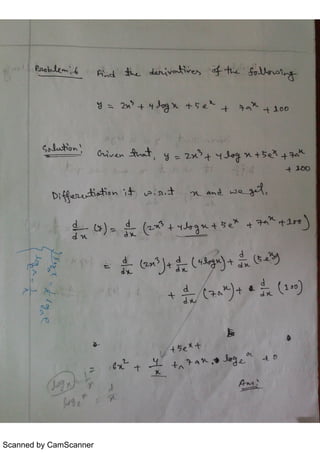 Problem:6 Find the derivatives of the following
y = 2x³ + 4 log x + 5eˣ + 7aˣ + 100
Solution: Given that, y = 2x³ + 4 log x + 5eˣ + 7aˣ
+ 100
Differentiation it w.r.t x and we get,
d/dx (y) = d/dx (2x³ + 4 log x + 5eˣ + 7aˣ + 100)
= d/dx (2x³) + d/dx (4 log x) + d/dx (5eˣ)
+ d/dx (7aˣ) + d/dx (100)
+ 5eˣ +
= 6x² + 4/x + 7aˣ. logₑᵃ + 0
Ans:
Scanned by CamScanner